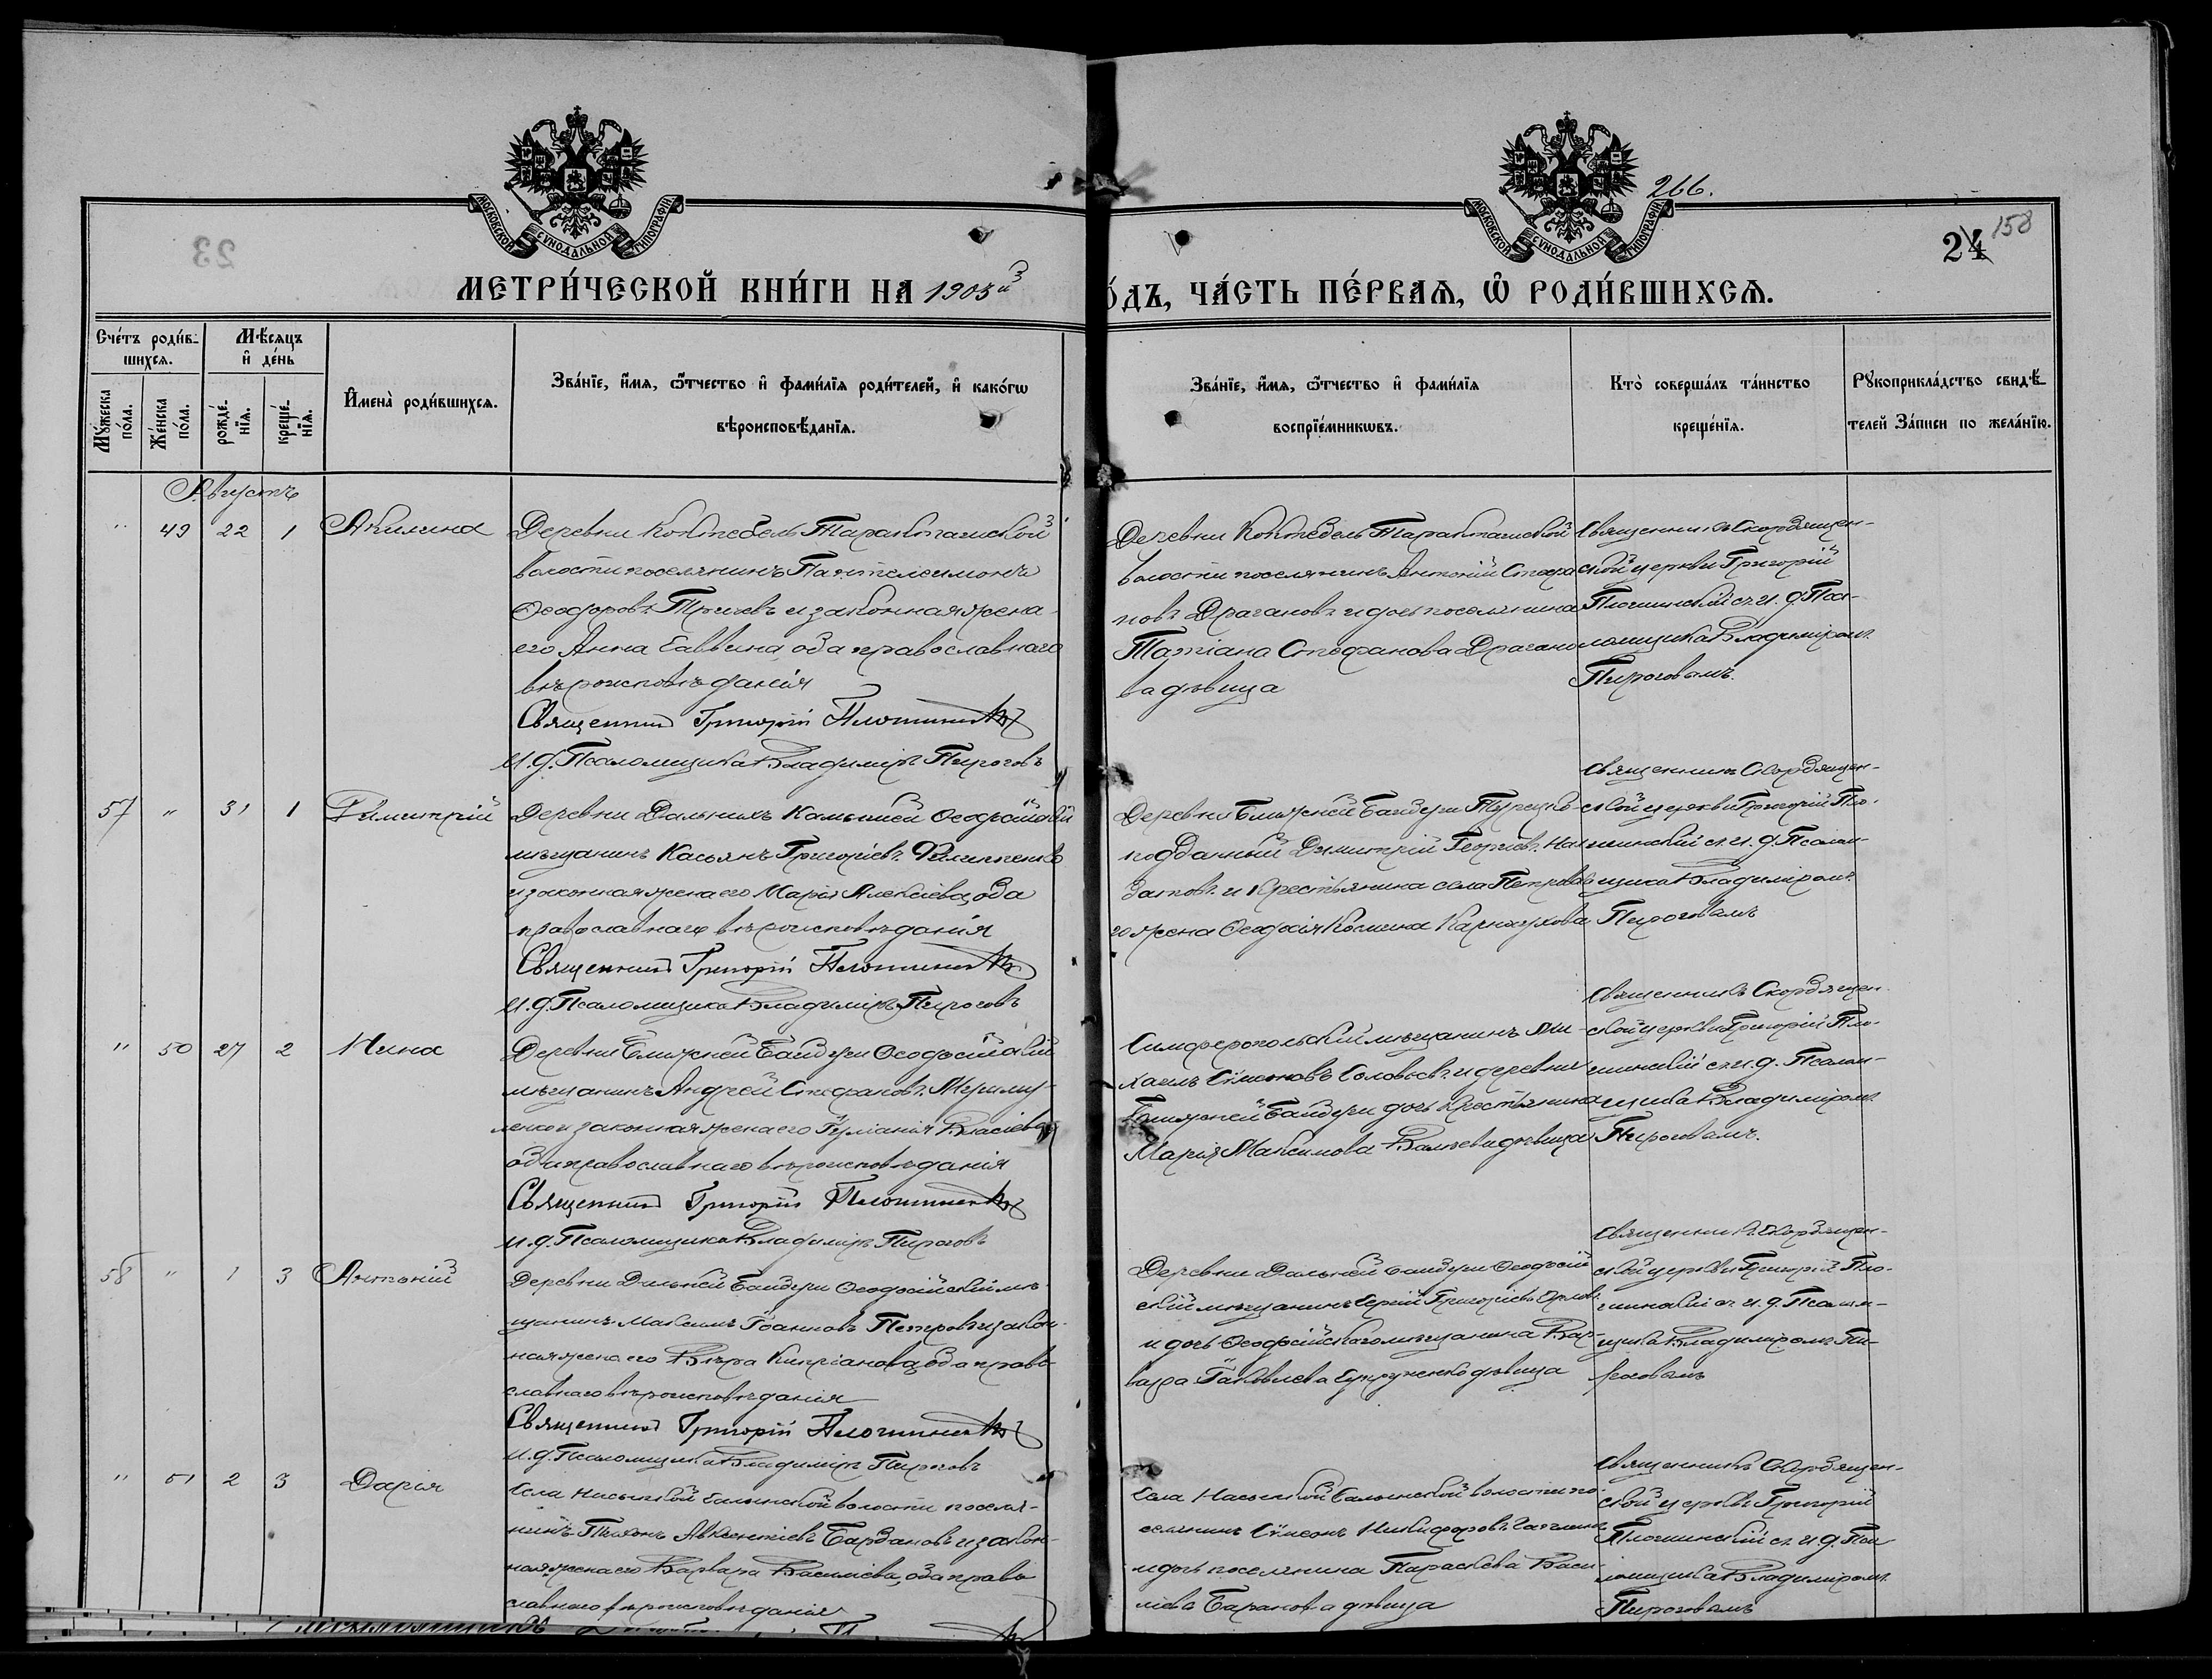 266.
МОСКОВСКОЙ СУНОДАЛЬНОЙ ТИПОГРАФІИ
МОСКОВСКОЙ СУНОДАЛЬНОЙ ТИПОГРАФІИ
23
24 158
МЕТРИ́ЧЕСКОЙ КНИ́ГИ НА 1903й
О́ДЪ, ЧА́СТЬ ПЕ́РВАѦ, Ѡ҆ РОДИ́ВШИХСѦ.
Сче́тъ роди́в-
шихсѧ.
Мѣ́сѧцъ
и҆ де́нь
Мꙋ́жеска
по́ла.
Же́нска
по́ла.
рожде́-
нїѧ.
креще́-
нїѧ.
И҆мена̀ роди́вшихсѧ.
Зва́нїе, и҆́мѧ, ѻ҆́тчество и҆ фами́лїѧ роди́телей, и҆ како́гѡ
вѣроисповѣ́данїѧ.
Зва́нїе, и҆́мѧ, ѻ҆́тчество и҆ фами́лїѧ
воспрїе́мникѡвъ.
Кто̀ соверша́лъ та́инство
креще́нїѧ.
Рꙋкоприкла́дство свидѣ́-
телей За́писи по жела́нїю.
Августъ
" 49 22 1 Акилина
Деревни Коктебель Таракташской
волости поселянинъ Пантелеимонъ
Ѳеодоровъ и законная жена
его Анна Саввина, оба православнаго
вѣроисповѣданія
Священникъ Григорій Плошинскій
И. д. Псаломщика Владиміръ Пироговъ
Деревни Коктебель Таракташской
волости поселянинъ Антоній Стефа
новъ Драгановъ и дочь поселянина
Татіана Стефанова Драгано
ва дѣвица
Священникъ Скордящен-
ской церкви Григорій
Плошинскій съ и. д. Пса-
ломщика Владиміромъ
Пироговымъ.
57 " 31 1 Димитрій
Деревни Дальнихъ Камышей Ѳеодосійскій
мѣщанинъ Касьянъ Григоріевъ Филипенко
и законная жена его Марія Алексіева, оба
православнаго вѣроисповѣданія
Священникъ Григорій Плошинскій
И. д. Псаломщика Владиміръ Пироговъ
Деревни Ближней Байбуги Турецко-
подданный Димитрій Георгіевъ
и крестьянина села Петровка
го жена Ѳеодосія Космина Карнаухова
Священникъ Скордящен-
ской церкви Григорій Пло-
шинскій съ и. д. Псалом-
щика Владиміромъ
Пироговымъ
" 50 27 2 Нина
Деревни Ближней Байбуги Ѳеодосійскій
мѣщанинъ Андрей Стефановъ
ленко и законная жена его Іуліанія Власіева
оба православнаго вѣроисповѣданія
Священникъ Григорій Плошинскій
И. д. Псаломщика Владиміръ Пироговъ
Симферопольскій мѣщанинъ Ми-
хаилъ Сѵмеоновъ Соловьевъ и деревни
Ближней Байбуги дочь крестьянина
Марія Максимова дѣвица
Священникъ Скордящен
ской церкви Григорій Пло-
шинскій съ и. д. Псалом-
щика Владиміромъ
Пироговымъ.
58 " 1 3 Антоній
Деревни Дальней Байбуги Ѳеодосійскій мѣ-
щанинъ Максимъ Іоанновъ Петровъ и закон-
ная жена его Вѣра Кипріанова, оба право-
славнаго вѣроисповѣданія
Священникъ Григорій Плошинскій
И. д. Псаломщика Владиміръ Пироговъ
Деревни Дальней Байбуги Ѳеодосій
скій мѣщанинъ Сергій Григоріевъ Орловъ
и дочь Ѳеодосійскаго мѣщанина Вар-
вара Іаковлева Супруненко дѣвица
Священникъ Скордящен-
ской церкви Григорій Пло-
шинскій съ и. д. Псалом-
щика Владиміромъ Пи-
роговымъ
" 51 2 3 Дарія
Села Насыпкой Салынской волости поселя-
нинъ Авксентіевъ и закон-
ная жена его Варвара Василіева, оба право
славнаго вѣроисповѣданія
Села Насыпкой Салынской волости по-
селянинъ Сѵмеонъ Никифоровъ
и дочь поселянина Параскева Васи
ліева Баранова дѣвица
Священникъ Скордящен-
ской церкви Григорій
Плошинскій съ и. д. Пса
ломщика Владиміромъ
Пироговымъ